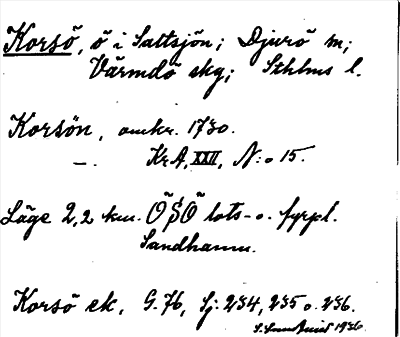 Korsö, ö i Saltsjön; Djurö sn;
Värmdö skg; Sthlms l.
Korsön, omkr. 1730.
—. Kr.A, XXII, N:o 15.
Läge 2,2 km. ÖSÖ lots- o. fyrpl.
Sandhamn.
Korsö ek, G. 76, Sj: 234, 235 o. 236.
1936